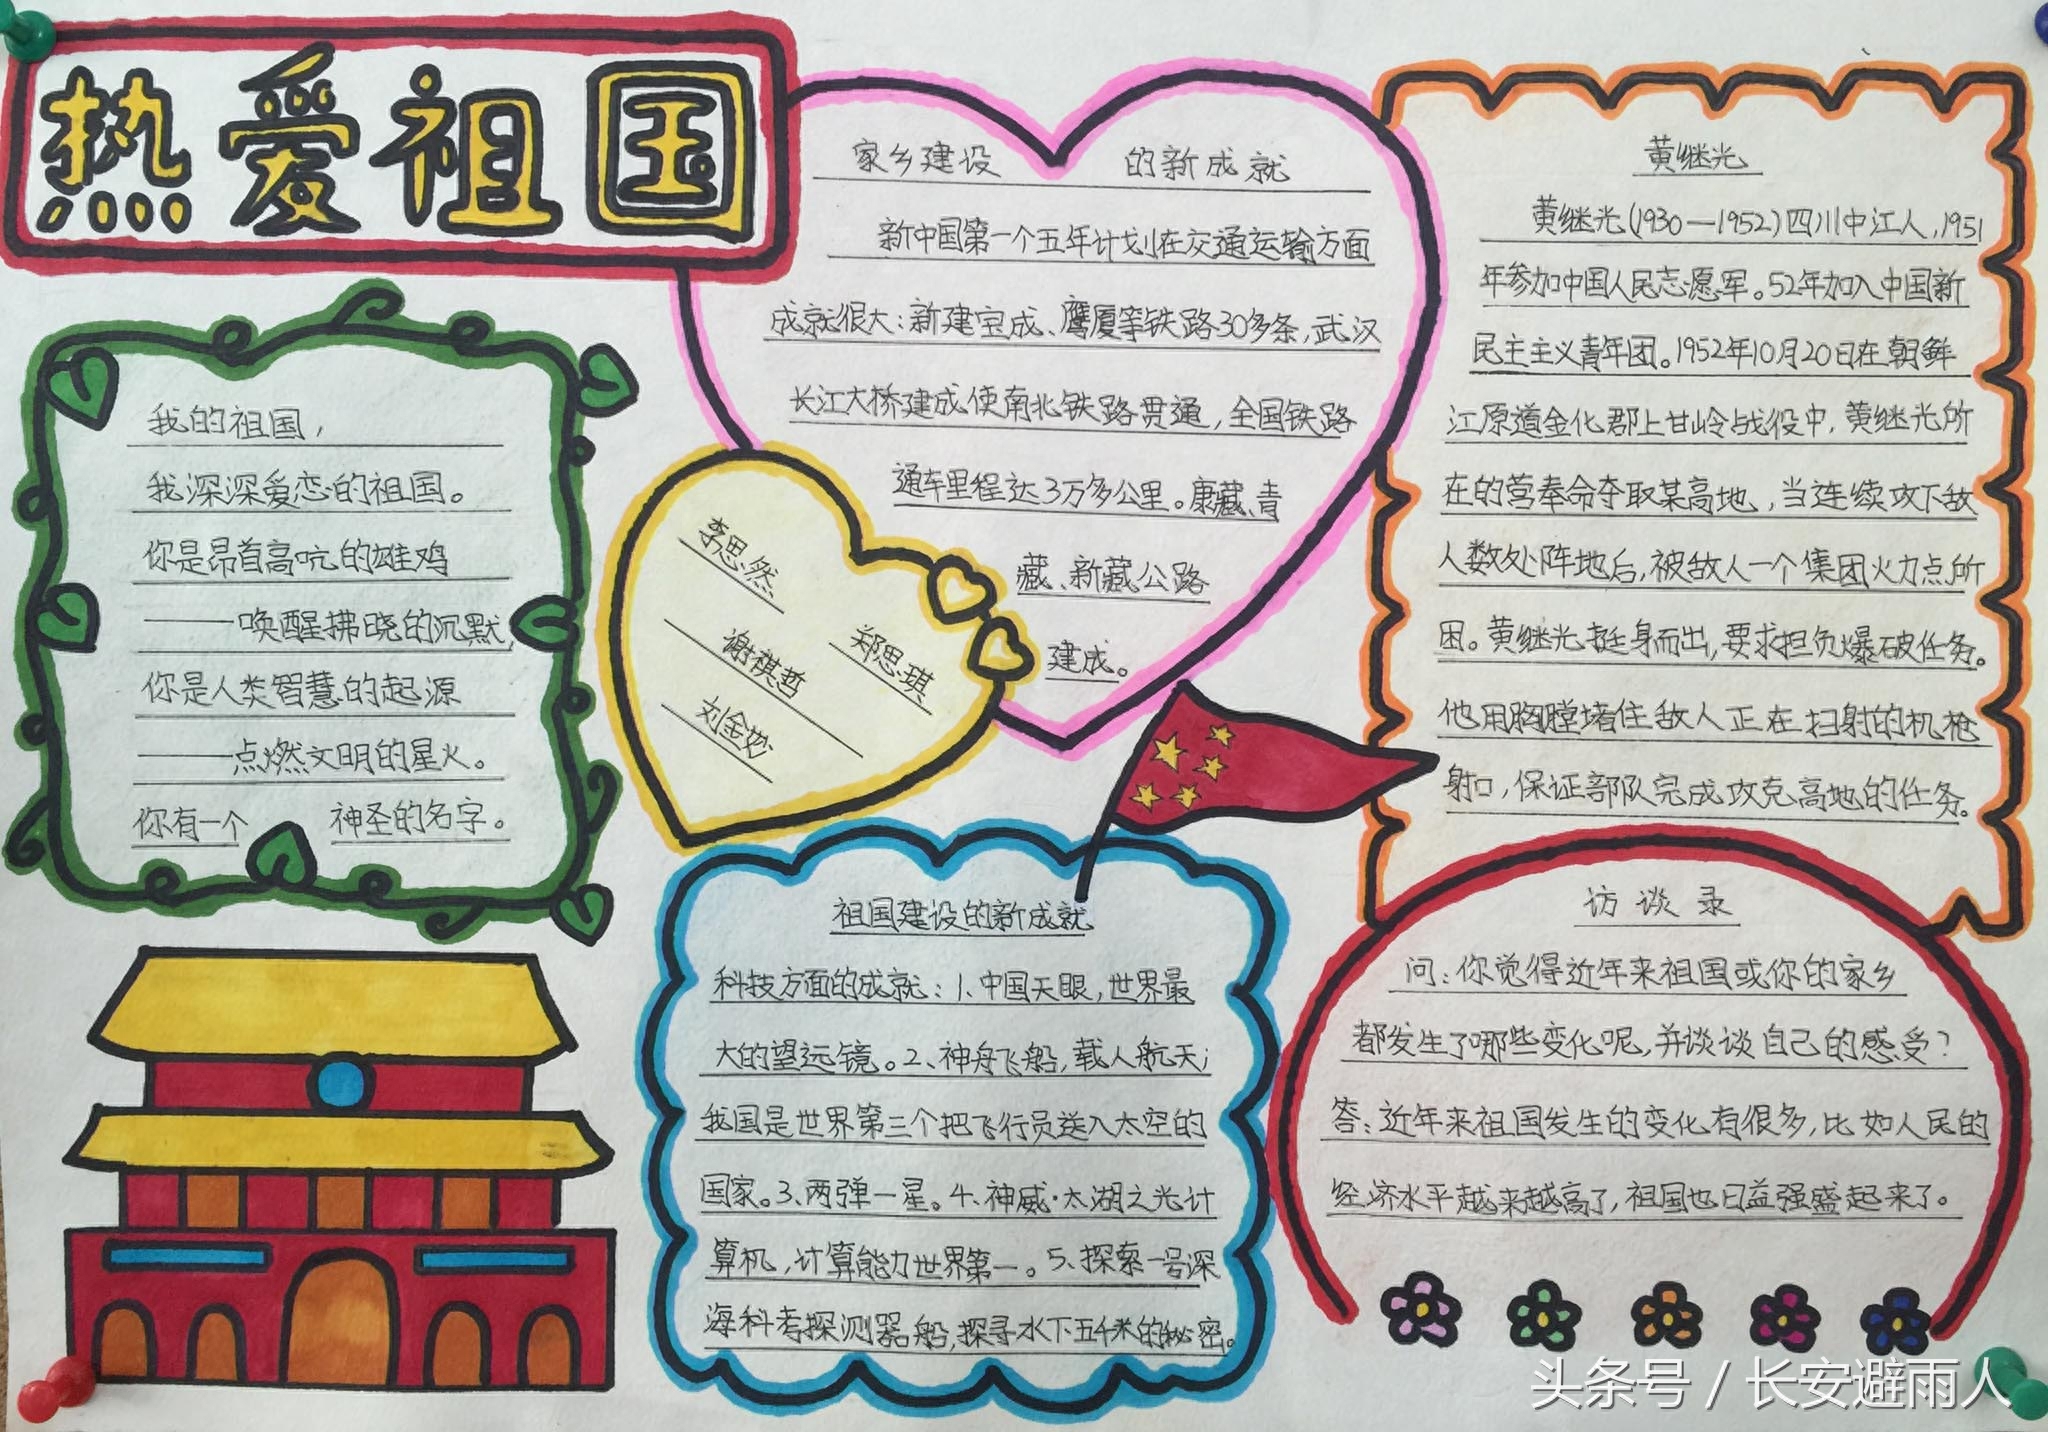 热爱祖国
我的祖国，
我深深爱恋的祖国。
你是昂首高吭的雄鸡
——唤醒拂晓的沉默，
你是人类智慧的起源
——点燃文明的星火。
你有一个 神圣的名字。
家乡建设 的新成就
新中国第一个五年计划在交通运输方面
成就很大：新建宝成、鹰厦等铁路30多条，武汉
长江大桥建成使南北铁路贯通，全国铁路
通车里程达3万多公里。康藏、青
藏、新藏公路
建成。
李思然
郑思琪
谢祺哲
刘金妙
祖国建设的新成就
科技方面的成就：1、中国天眼，世界最
大的望远镜。2、神舟飞船，载人航天；
我国是世界第三个把飞行员送入太空的
国家。3、两弹一星。4、神威·太湖之光计
算机，计算能力世界第一。5、探索一号深
海科考探测器船，探寻水下五千米的秘密。
黄继光
黄继光（1930—1952）四川中江人，1951
年参加中国人民志愿军。52年加入中国新
民主主义青年团。1952年10月20日在朝鲜
江原道金化郡上甘岭战役中，黄继光所
在的营奉命夺取某高地，当连续攻下敌
人数处阵地后，被敌人一个集团火力点所
困。黄继光挺身而出，要求担负爆破任务。
他用胸膛堵住敌人正在扫射的机枪
射口，保证部队完成攻克高地的任务。
访谈录
问：你觉得近年来祖国或你的家乡
都发生了哪些变化呢，并谈谈自己的感受？
答：近年来祖国发生的变化有很多，比如人民的
经济水平越来越高了，祖国也日益强盛起来了。
头条号 / 长安避雨人